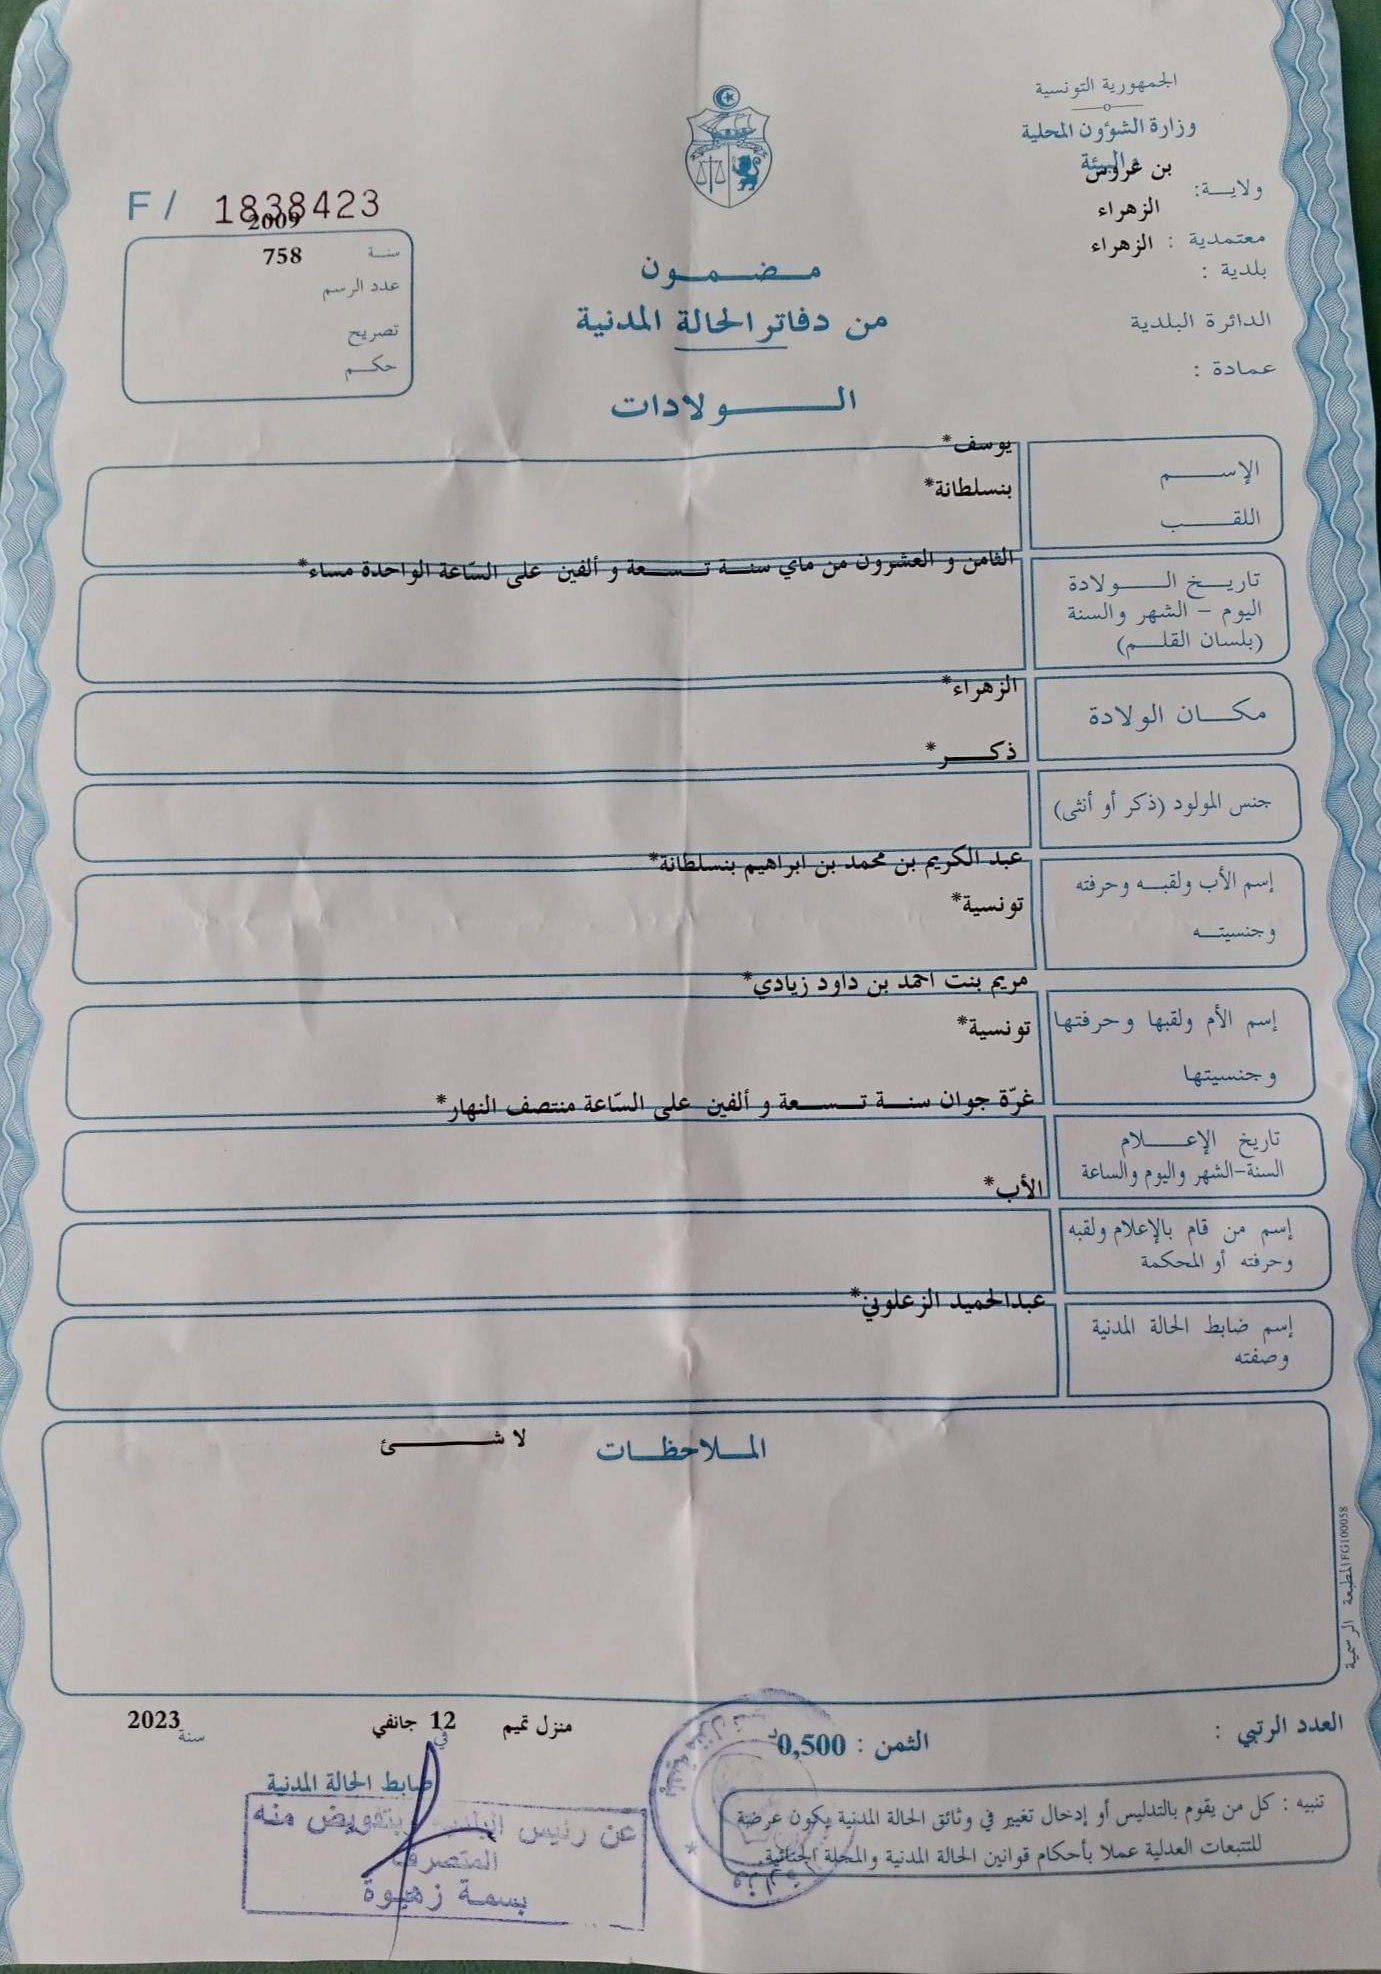 الجمهورية التونسية
وزارة الشؤون المحلية
و البيئة
ولايــة: بن عروس
معتمدية : الزهراء
بلدية : الزهراء
الدائرة البلدية
عمادة :
F / 1838423
سنـة 2009
عدد الرسم 758
تصريح
حكـم
مـضـمـون
من دفاتر الحالة المدنية
الـــولادات
الإســـم يوسف*
اللقـــب بنسلطانة*
تاريـخ الــولادة
اليوم - الشهر والسنة
(بلسان القلـم)
الثامن و العشرون من ماي سنـة تـسـعة و ألفين على السّاعة الواحدة مساء*
مكـان الولادة الزهراء*
جنس المولود (ذكر أو أنثى) ذكـر*
إسم الأب ولقبـه وحرفته
وجنسيتـه
عبد الكريم بن محمد بن ابراهيم بنسلطانة*
تونسية*
إسم الأم ولقبها وحرفتها
وجنسيتها
مريم بنت احمد بن داود زيادي*
تونسية*
تاريخ الإعــلام
السنة-الشهر واليوم والساعة
غرّة جوان سنـة تـسـعة و ألفين على السّاعة منتصف النهار*
إسم من قام بالإعلام ولقبه
وحرفته أو المحكمة
الأب*
إسم ضابط الحالة المدنية
وصفته
عبدالحميد الزعلوني*
المـلاحظـات
لا شـــئ
المطبعة الرسمية FG100058
العدد الرتبي :
الثمن : 0,500د
منزل تميم في 12 جانفي سنة 2023
ضابط الحالة المدنية
عن رئيس البلدية وبتفويض منه
المتصرف
بسمة زهيوة
تنبيه : كل من يقوم بالتدليس أو إدخال تغيير في وثائق الحالة المدنية يكون عرضة
للتتبعات العدلية عملا بأحكام قوانين الحالة المدنية والمجلة الجنائية.